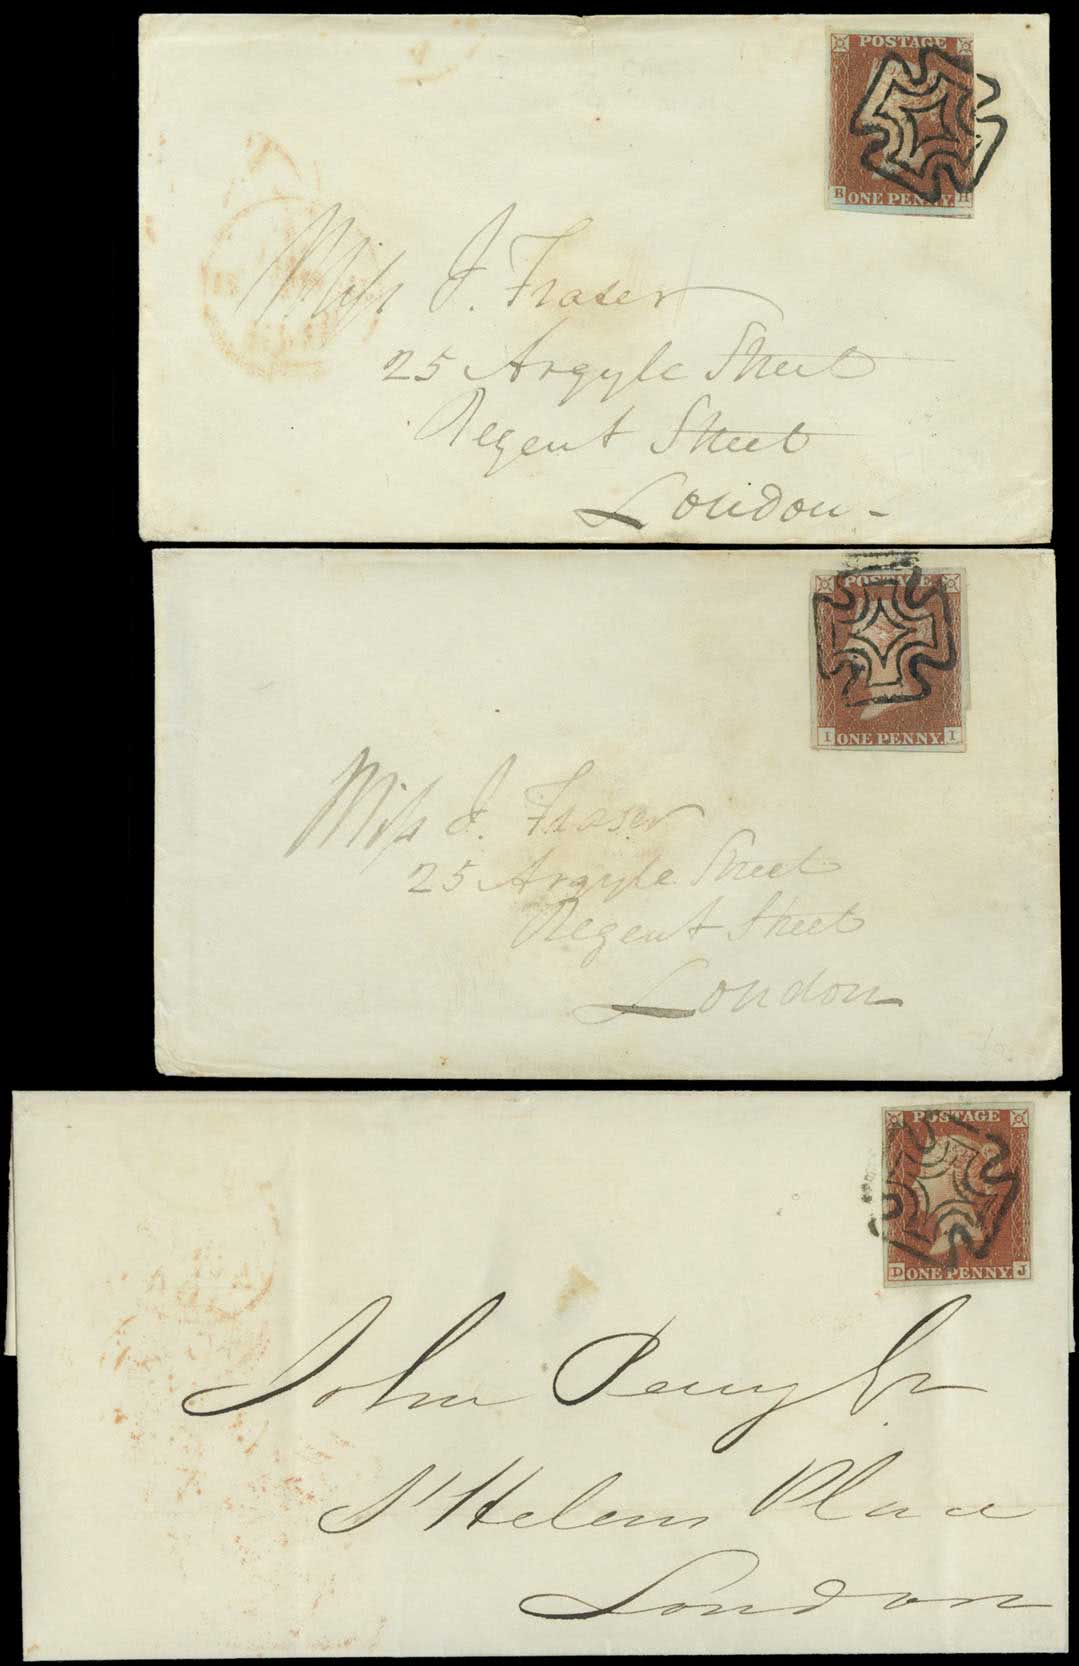 POSTAGE
B ONE PENNY. H
Miss J. Fraser
25 Argyle Street
Regent Street
London -
POSTAGE
I ONE PENNY. I
Miss J. Fraser
25 Argyle Street
Regent Street
London
POSTAGE
D ONE PENNY. J
John Perry Jr
St Helens Place
London